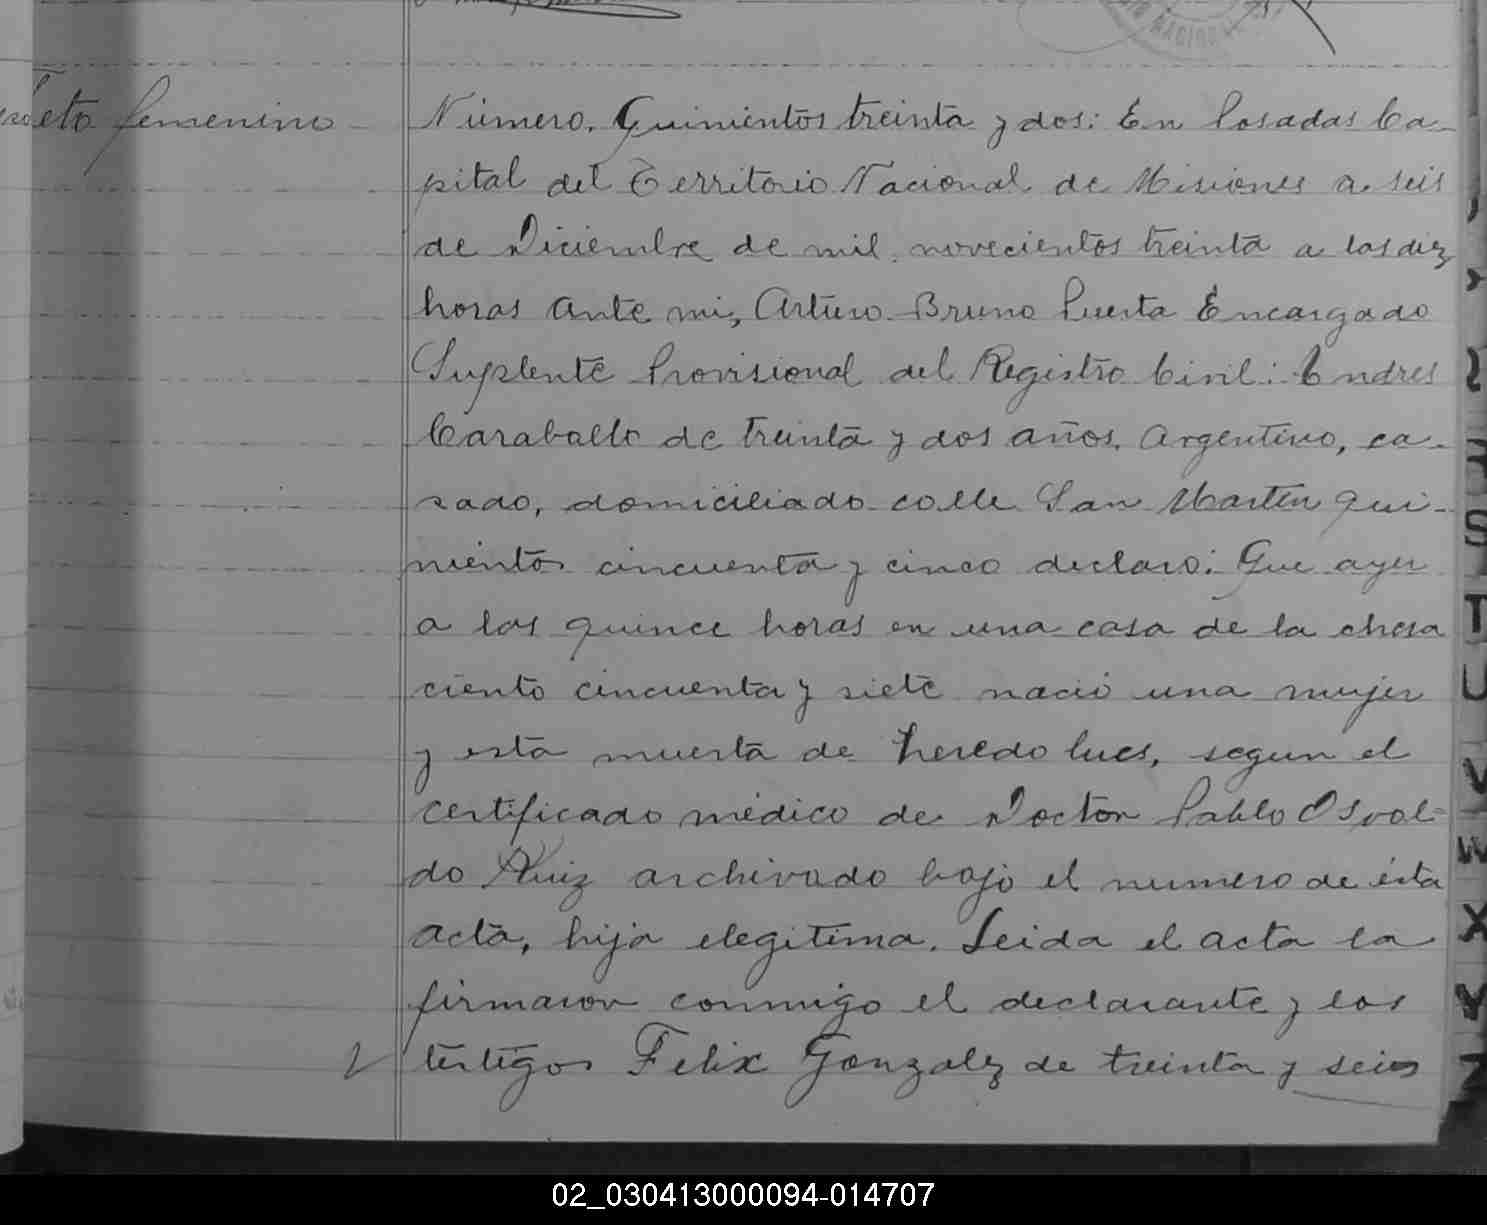 Feto femenino
Número. Quinientos treinta y dos: En Posadas Ca-
pital del Territorio Nacional de Misiones a seis
de Diciembre de mil novecientos treinta a las diez
horas ante mi, Arturo Bruno Puerta Encargado
Suplente Provisional del Registro Civil: Andres
Caraballo de treinta y dos años, Argentino, ca-
sado, domiciliado calle San Martin qui-
nientos cincuenta y cinco declaró: Que ayer
a las quince horas en una casa de la chacra
ciento cincuenta y siete nació una mujer
y esta muerta de heredo lues, segun el
certificado médico de Doctor Pablo Osval-
do Ruiz archivado bajo el numero de ésta
acta, hija elegitima. Leida el acta la
firmaron conmigo el declarante y los
testigos Felix Gonzalez de treinta y seis
S
T
U
V
W
X
Y
Z
02_030413000094-014707